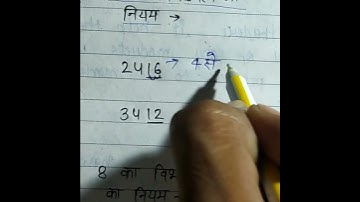 नियम →
2416 → 4 से
3412
8 का
का नियम -